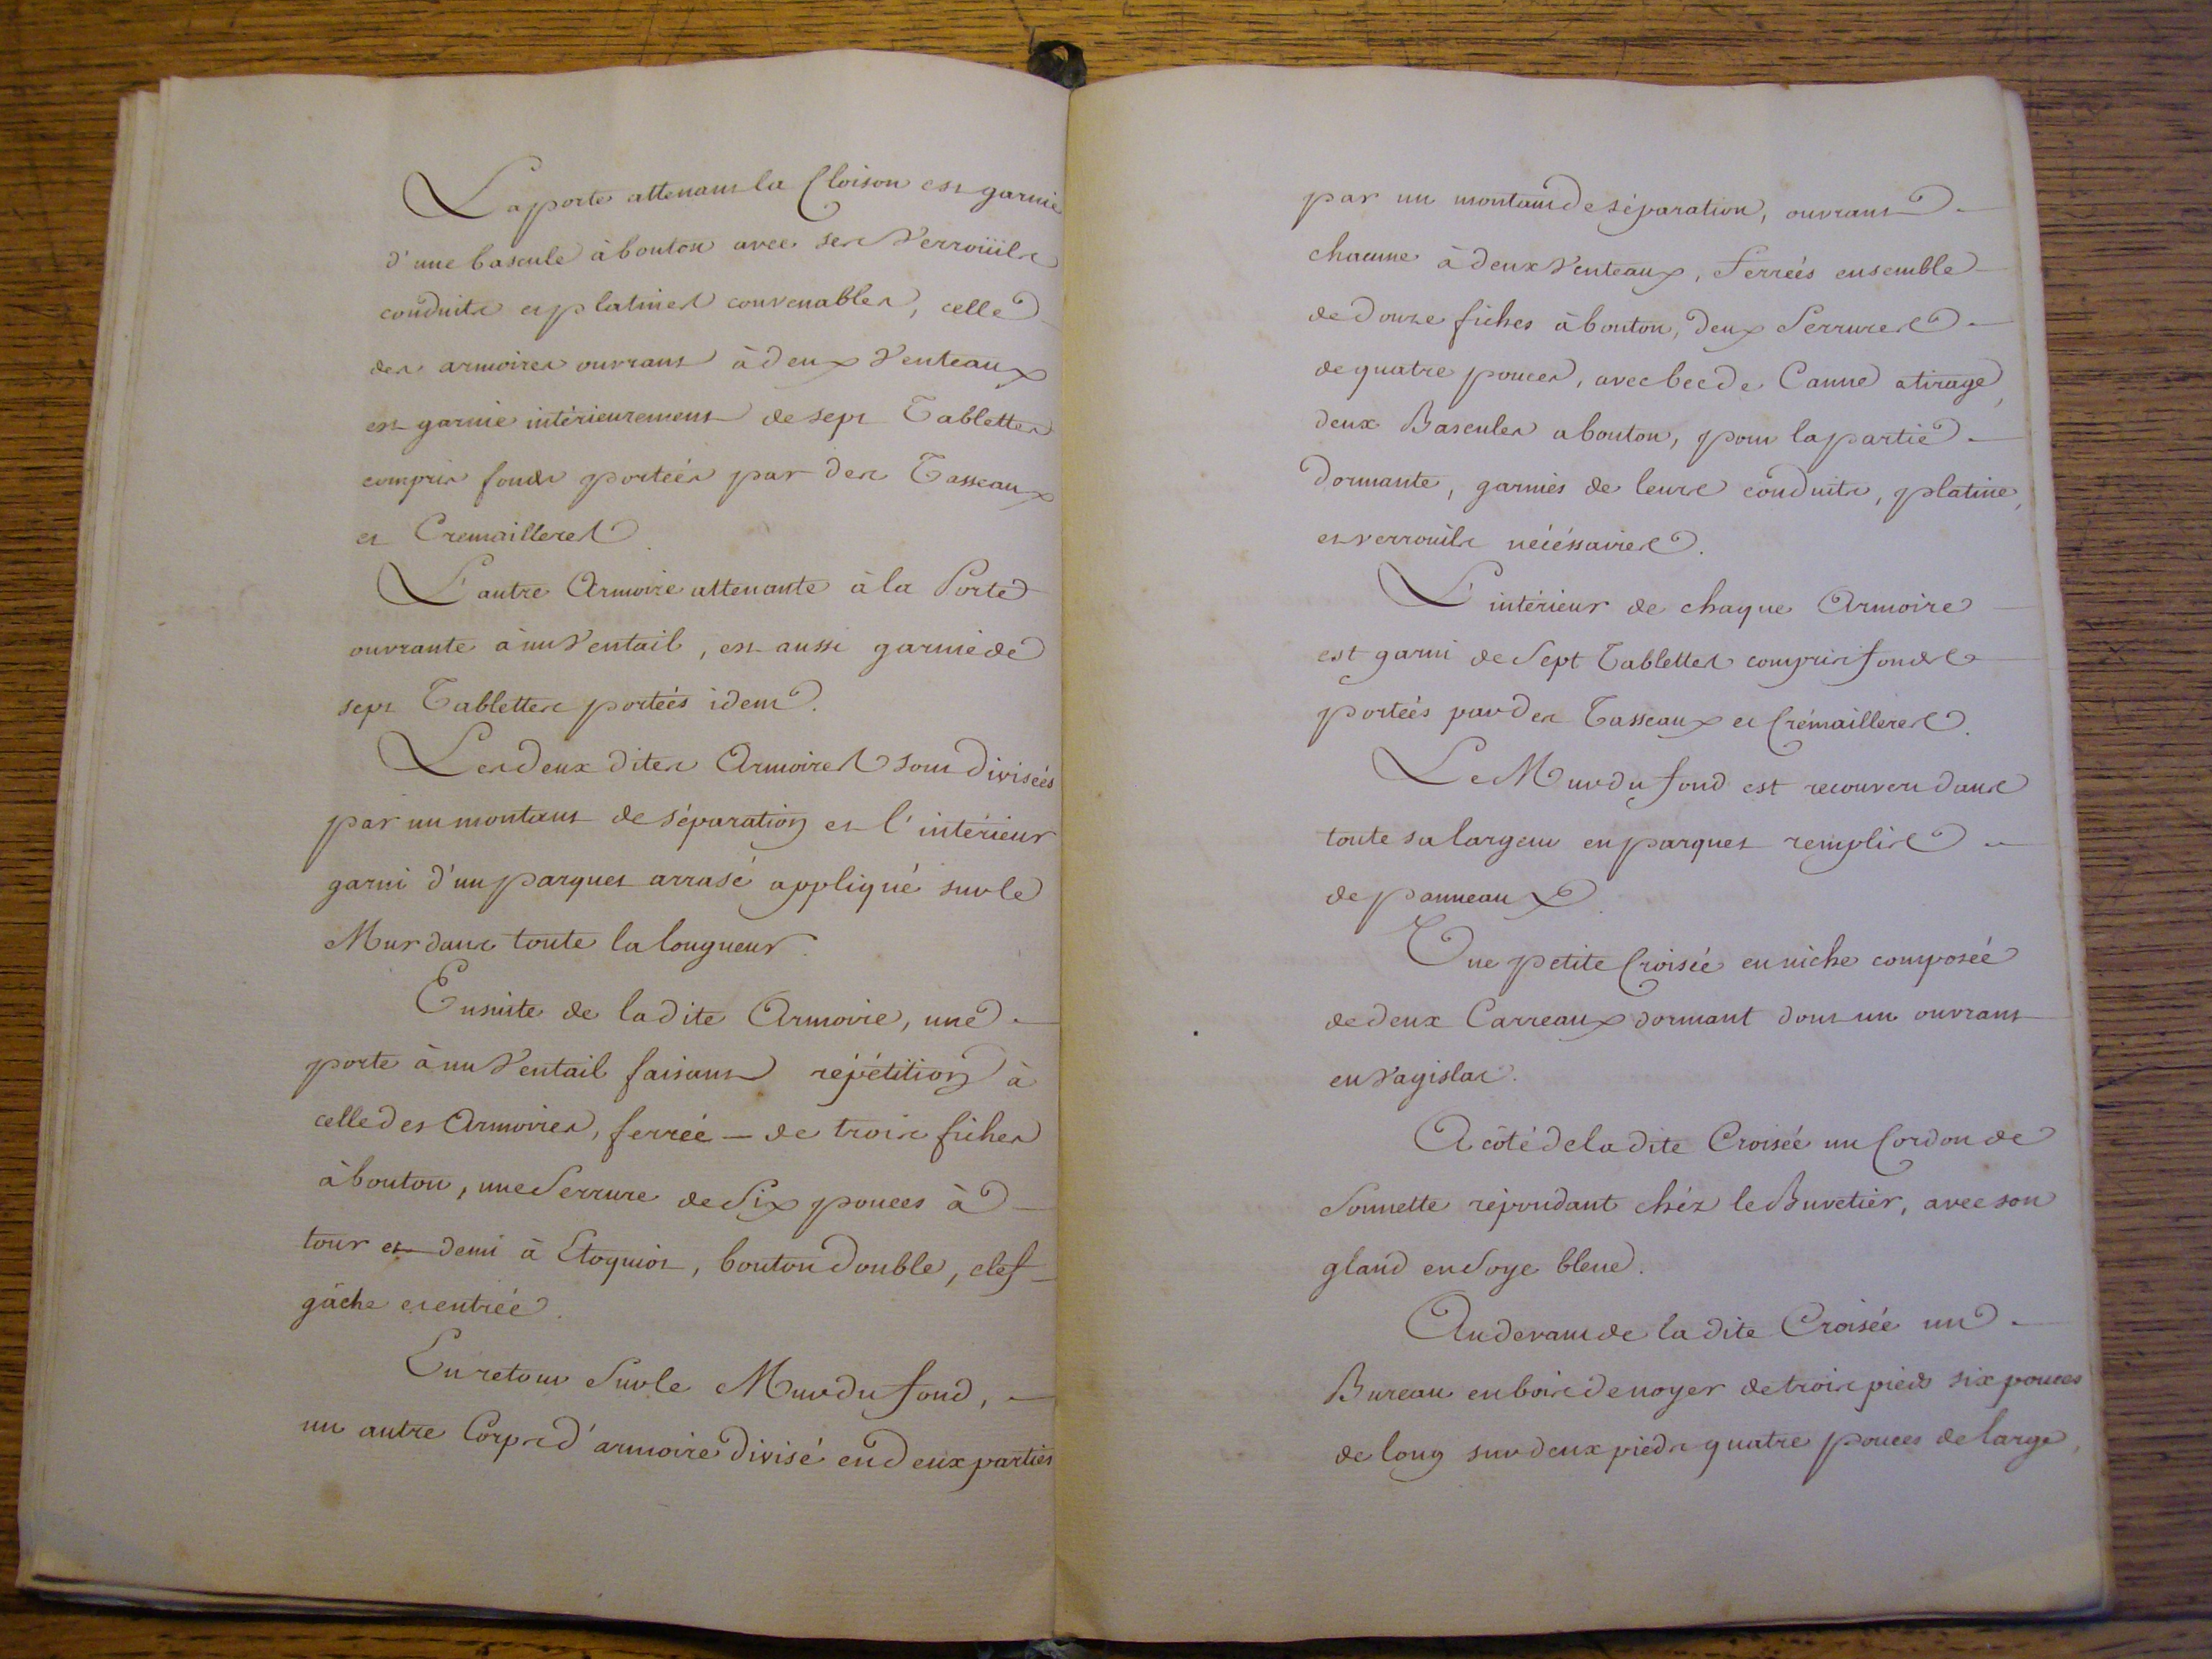 La porte attenant la Cloison est garnie
d'une bascule à bouton avec ses Verroüils
conduits et platines convenables, celle
des armoires ouvrant à deux Venteaux
est garnie intérieurement de sept Tablettes
compris fonds portées par des Tasseaux
et Cremailleres.
L'autre Armoire attenante à la Porte
ouvrante à un Ventail, est aussi garnie de
sept Tablettes portées idem.
Les deux dites Armoires sont divisées
par un montant de séparation et l'intérieur
garni d'un parquet arrasé appliqué sur le
Mur dans toute la longueur.
Ensuite de la dite Armoire, une
porte à un Ventail faisant répétition à
celle des Armoires, ferrée — de trois fiches
à bouton, une Serrure de Six pouces à
tour et demi à Etoquiot, bouton double, clef
gâche et entrée.
En retour Sur le Mur du fond,
un autre Corps d'armoire divisé en deux parties
par un montant de séparation, ouvrant
chacune à deux Venteaux, Ferreés ensemble
de douze fiches à bouton, deux Serrures
de quatre pouces, avec bec de Canne a tirage,
deux Bascules a bouton, pour la partie
dormante, garnies de leurs conduits, platine,
et verrouils nécéssaires.
L'intérieur de chaque Armoire
est garni de Sept Tablettes compris fonds
porteés par des Tasseaux et Crémailleres.
Le Mur du fond est recouvert dans
toute sa largeur en parquet remplis
de panneaux.
Une petite Croisée en niche composée
de deux Carreaux dormant dont un ouvrant
en Vagislas.
A côté de la dite Croisée un Cordon de
Sonnette répondant chéz le Buvetier, avec son
gland en Soye bleue.
Au devant de la dite Croisée un
Bureau en bois de noyer de trois pieds six pouces
de long sur deux pieds quatre pouces de large,